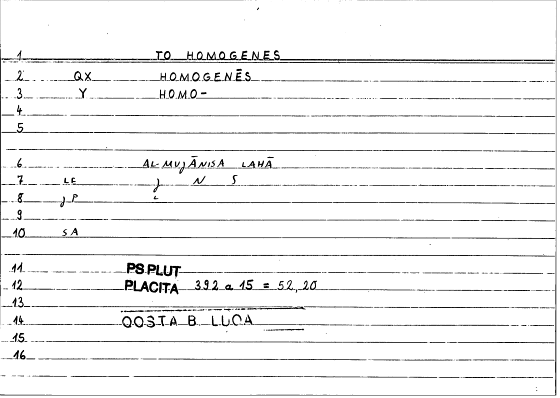 1 TO HOMOGENES
2 QX HOMOGENĒS
3 Y HOMO-
4
5
6 AL-MUJĀNISA LAHĀ
7 LE j N S
8 jP i
9
10 SA
11 PS PLUT
12 PLACITA 392 a 15 = 52, 20
13
14 QOSTA B. LUCA
15
16